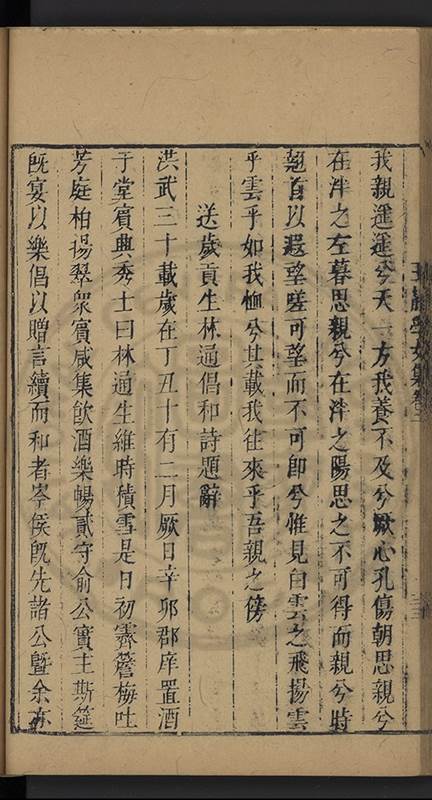 我親遥遥兮天一方我養不及兮厥心孔傷朝思親兮
在泮之左暮思親兮在泮之陽思之不可得而親兮時
翹首以遐望嗟可望而不可卽兮惟見白雲之飛揚雲
乎雲乎如我恤兮其載我往來乎吾親之傍
送歲貢生林通倡和詩題辭
洪武三十載歲在丁丑十有二月厥日辛卯郡庠置酒
于堂賓典秀士曰林通生維時積雪是日初霽簷梅吐
芳庭柏揚翠衆賓咸集飮酒樂暢貳守俞公實主斯筵
旣宴以樂倡以贈言續而和者岑侯旣先諸公曁余亦